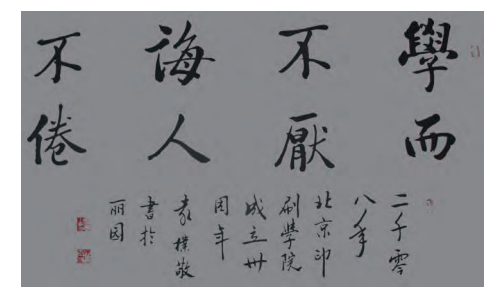 學而
不厭
誨人
不倦
二千零
八年
北京印
刷學院
成立卅
周年
袁樸敬
書於
丽园